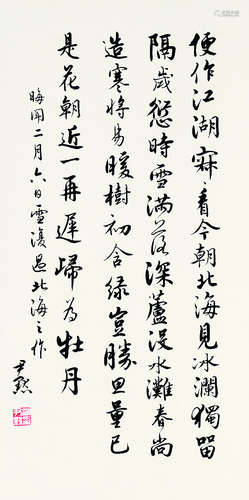 便作江湖寐〻看今朝北海見冰瀾獨留
隔歲愆時雪滿落深蘆没水灘春尚
造寒將易暖樹初含緑豈勝思量已
是花朝近一再遲歸為牡丹
晦聞二月六日雪復過北海之作
尹默